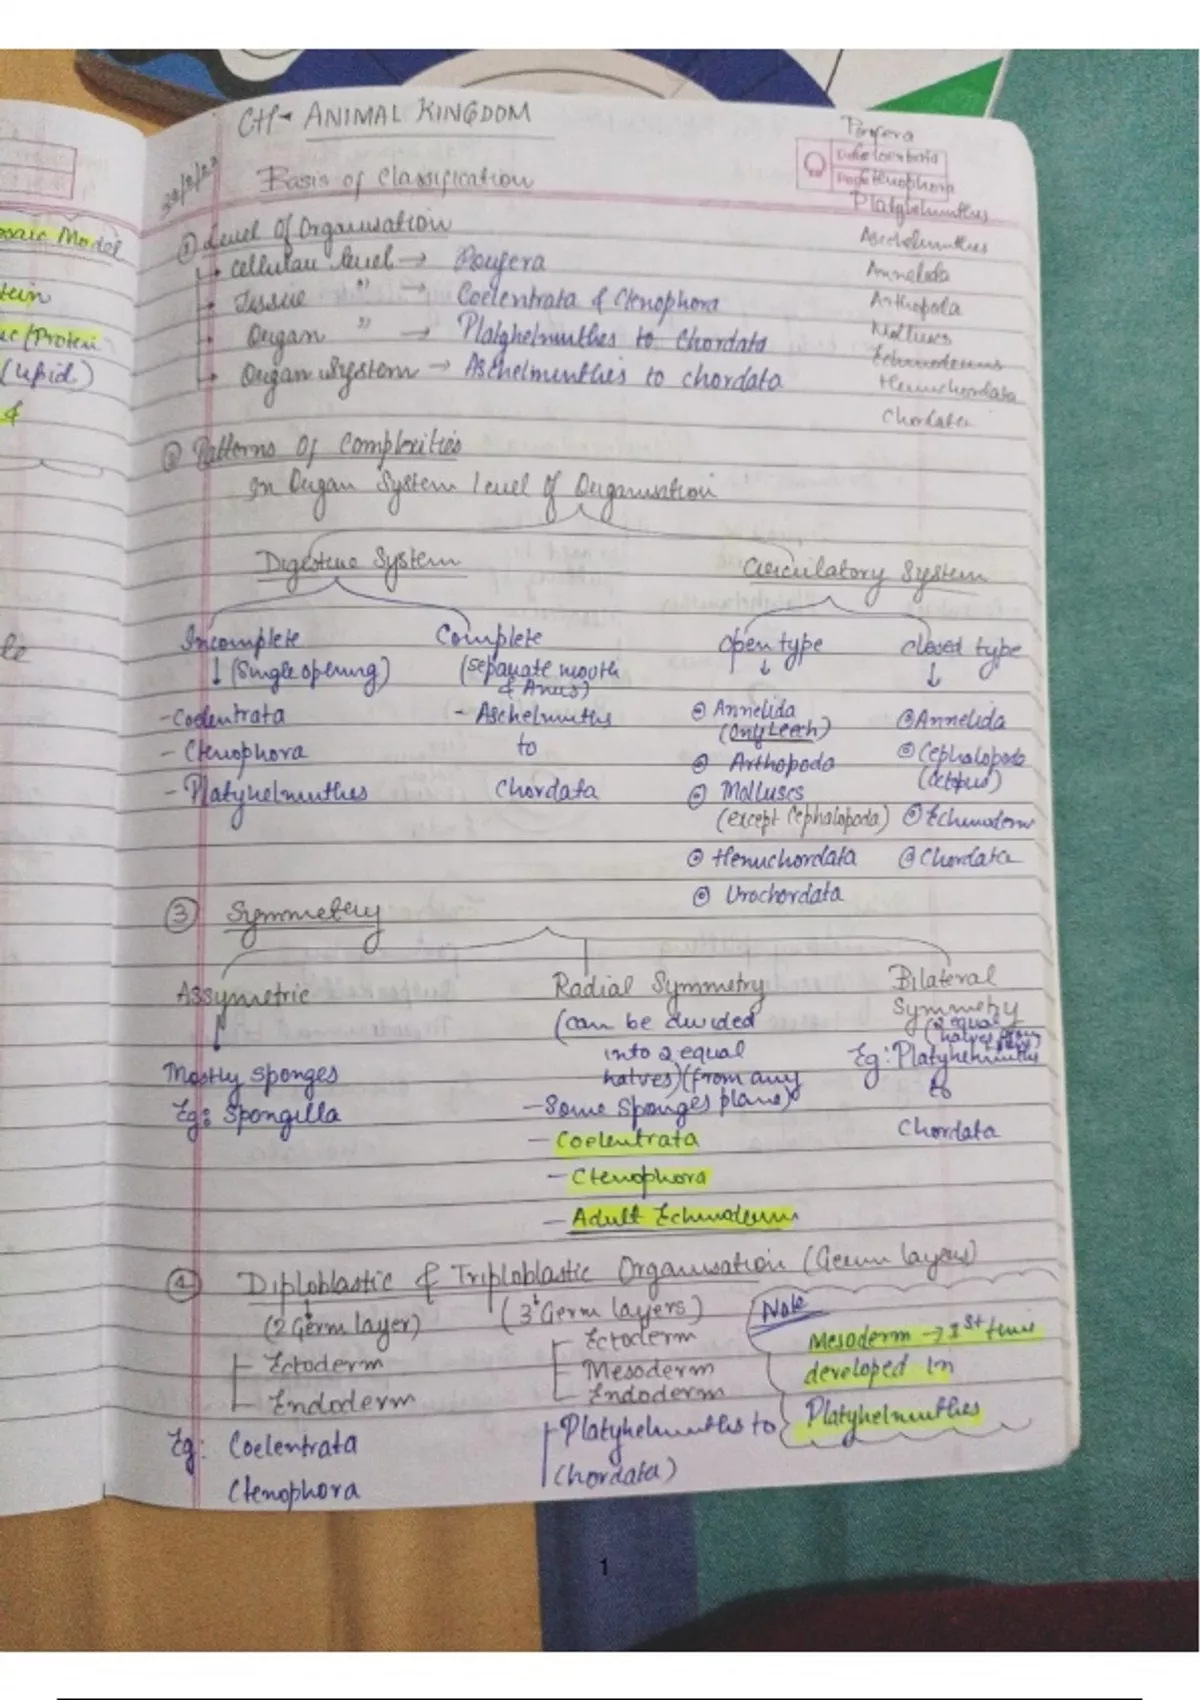 CH- ANIMAL KINGDOM
29/8/23
Basis of Classification
Porifera
Coelenterata
Ctenophora
Platyhelminthes
Aschelminthes
Annelida
Arthropoda
Molluscs
Echinoderms
Hemichordata
Chordata
① Level Of Organisation
Cellular level → Porifera
Tissue " → Coelentrata & Ctenophora
Organ " → Platghelminthes to Chordata
Organ System → Aschelminthes to chordata
② Patterns Of Complexities
In Organ System level of Organisation
Digestive System
Circulatory System
Incomplete
↓ (Single opening)
- Coelentrata
- Ctenophora
- Platyhelminthes
Complete
(separate mouth
& Anus)
- Aschelminths
to
Chordata
Open type
↓
Annelida
(Only Leech)
Arthopoda
Molluscs
(except Cephalopoda)
Hemichordata
Urochordata
closed type
↓
Annelida
Cephalopoda
(Octopus)
Echinoderm
Chordata
③ Symmetry
Assymetric
Mostly sponges
Eg: Spongilla
Radial Symmetry
(can be divided
into 2 equal
halves) (from any
plane)
- Some Sponges
- Coelentrata
- Ctenophora
- Adult Echinoderm
Bilateral
Symmetry
(2 equal
halves
Eg: Platyhelminths
to
Chordata
④ Diploblastic & Triploblastic Organisation (Germ layers)
(2 Germ layer)
Ectoderm
Endoderm
Eg: Coelentrata
Ctenophora
(3 Germ layers)
Ectoderm
Mesoderm
Endoderm
Platyhelminths to
Chordata)
Note
Mesoderm → 1st time
developed In
Platyhelminthes
Mosaic Model
(Protein
(lipid)
&
1